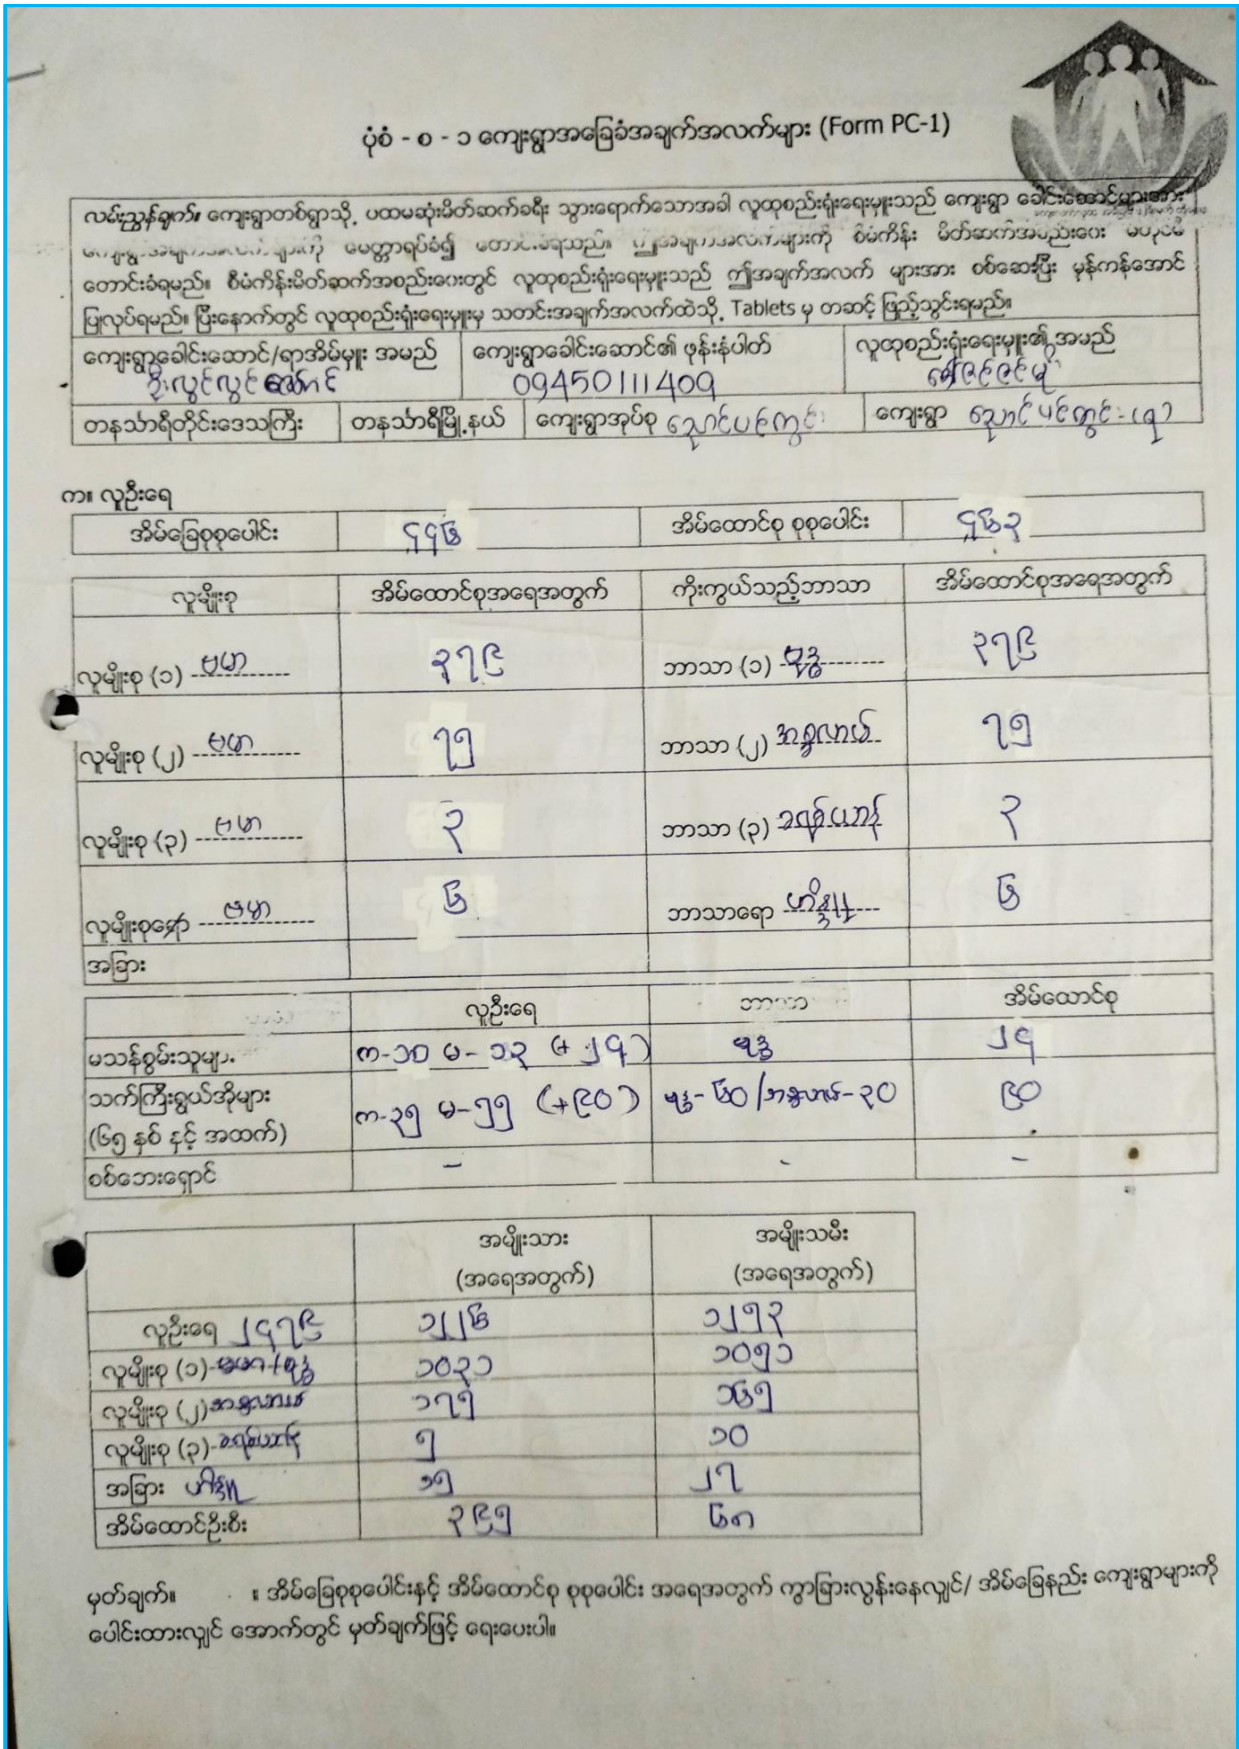 ပုံစံ - စ - ၁ ကျေးရွာအခြေခံအချက်အလက်များ (Form PC-1)
လမ်းညွှန်ချက်။ ကျေးရွာတစ်ရွာသို့ ပထမဆုံးမိတ်ဆက်ခရီး သွားရောက်သောအခါ လူထုစည်းရုံးရေးမှူးသည် ကျေးရွာ ခေါင်းဆောင်များအား
မေတ္တာရပ်ခံ၍ တောင်းခံရသည်။ ဤအချက်အလက်များကို စီမံကိန်း မိတ်ဆက်အစည်းဝေး မတိုင်မီ
တောင်းခံရမည်။ စီမံကိန်းမိတ်ဆက်အစည်းဝေးတွင် လူထုစည်းရုံးရေးမှူးသည် ဤအချက်အလက် များအား စစ်ဆေးပြီး မှန်ကန်အောင်
ပြုလုပ်ရမည်။ ပြီးနောက်တွင် လူထုစည်းရုံးရေးမှူးမှ သတင်းအချက်အလက်ထဲသို့ Tablets မှ တဆင့် ဖြည့်သွင်းရမည်။
ကျေးရွာခေါင်းဆောင်/ရာအိမ်မှူး အမည် ကျေးရွာခေါင်းဆောင်၏ ဖုန်းနံပါတ် လူထုစည်းရုံးရေးမှူး၏ အမည်
ဦးလွင်လွင် 09450111409
တနင်္သာရီတိုင်းဒေသကြီး တနင်္သာရီမြို့နယ် ကျေးရွာအုပ်စု ညောင်ပင်ကွင်း ကျေးရွာ ညောင်ပင်ကွင်း (ရ)
က။ လူဦးရေ
အိမ်ခြေစုစုပေါင်း ၄၄၆ အိမ်ထောင်စု စုစုပေါင်း ၄၆၃
လူမျိုးစု အိမ်ထောင်စုအရေအတွက် ကိုးကွယ်သည့်ဘာသာ အိမ်ထောင်စုအရေအတွက်
လူမျိုးစု (၁) ဗမာ ၃၇၉ ဘာသာ (၁) ဗုဒ္ဓ ၃၇၉
လူမျိုးစု (၂) ဗမာ ၇၅ ဘာသာ (၂) အစ္စလာမ် ၇၅
လူမျိုးစု (၃) ဗမာ ၃ ဘာသာ (၃) ခရစ်ယာန် ၃
လူမျိုးစုရော ဗမာ ၆ ဘာသာရော ဟိန္ဒူ ၆
အခြား
လူဦးရေ ဘာသာ အိမ်ထောင်စု
မသန်စွမ်းသူများ က-၁၁ မ-၁၃ (+ ၂၄) ဗုဒ္ဓ ၂၄
သက်ကြီးရွယ်အိုများ က-၃၅ မ-၅၅ (+၉၀) ဗုဒ္ဓ-၆၀/အစ္စလာမ်-၃၀ ၉၀
(၆၅ နှစ် နှင့် အထက်)
စစ်ဘေးရှောင် - - -
အမျိုးသား အမျိုးသမီး
(အရေအတွက်) (အရေအတွက်)
လူဦးရေ ၂၄၇၉ ၁၂၂၆ ၁၂၅၃
လူမျိုးစု (၁) ဗမာ/ဗုဒ္ဓ ၁၀၃၁ ၁၀၅၁
လူမျိုးစု (၂) အစ္စလာမ် ၁၇၅ ၁၆၅
လူမျိုးစု (၃) ခရစ်ယာန် ၅ ၁၀
အခြား ဟိန္ဒူ ၁၅ ၂၇
အိမ်ထောင်ဦးစီး ၃၉၅ ၆၈
မှတ်ချက်။ ။ အိမ်ခြေစုစုပေါင်းနှင့် အိမ်ထောင်စု စုစုပေါင်း အရေအတွက် ကွာခြားလွန်းနေလျှင်/ အိမ်ခြေနည်း ကျေးရွာများကို
ပေါင်းထားလျှင် အောက်တွင် မှတ်ချက်ဖြင့် ရေးပေးပါ။